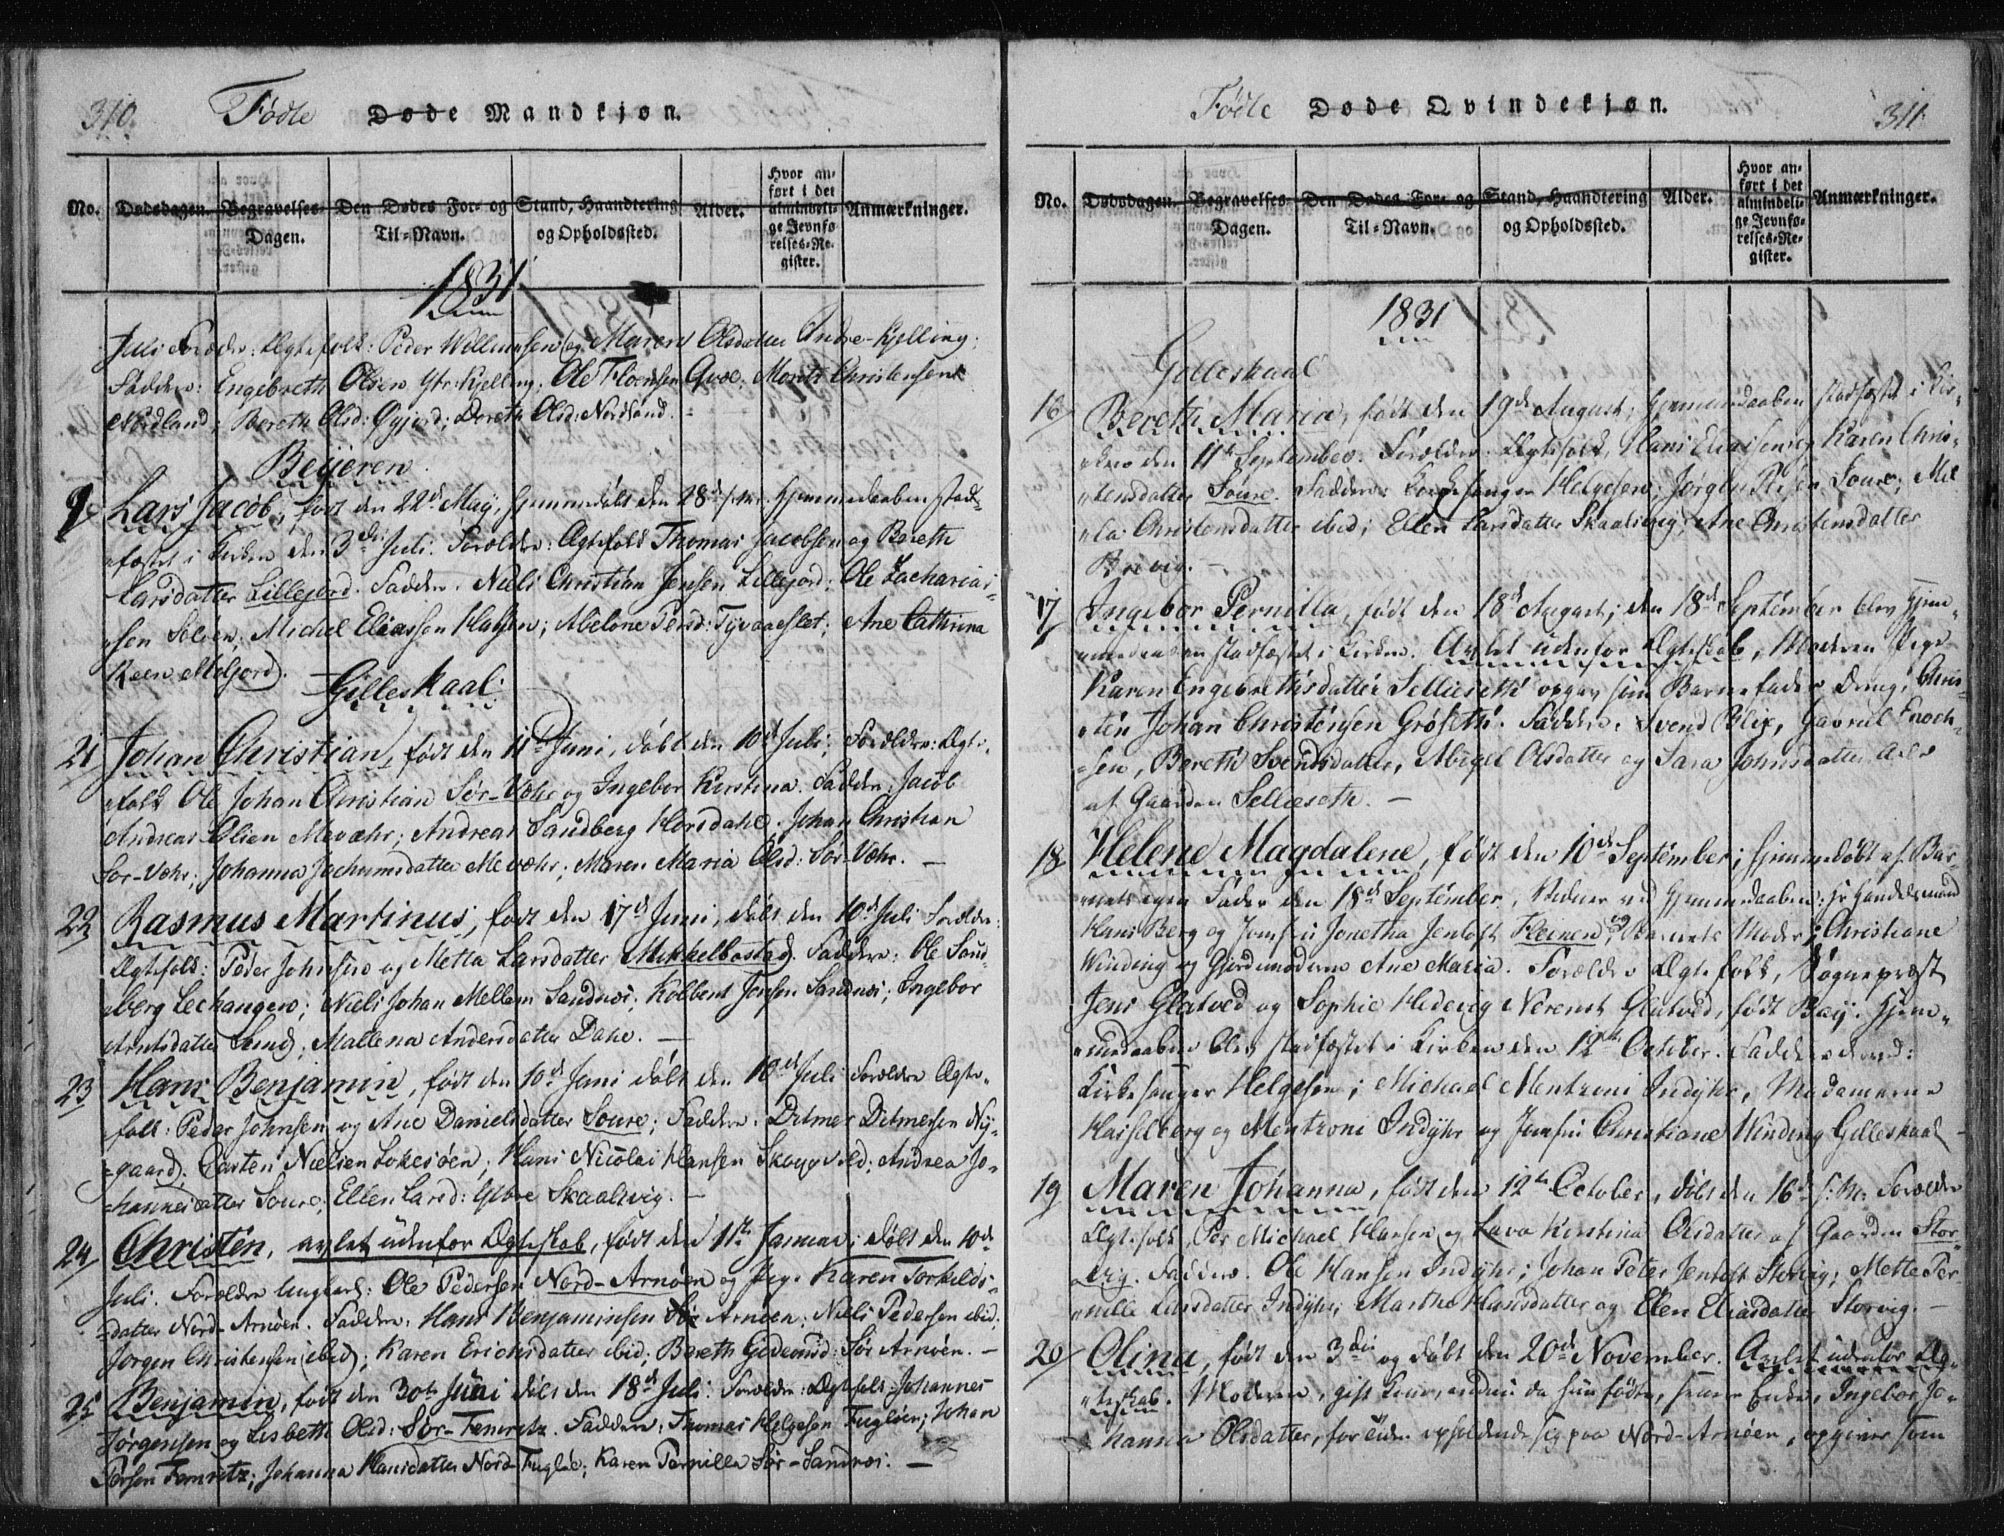 310. Fødte Døde Mandkjøn.
No. Dødsdagen. Begravelses Dagen. Den Dødes For- og Til-Navn. Stand, Haandtering og Opholdssted. Alder. Hvor anført i det almindelige Jevnførelses-Register. Anmærkninger.
1831
Juli Forældre: Ægtefolk: Peder Willumsen og Maren Olsdatter Indre-Kjelling;
Faddere: Engebreth Olsen Ytr: Kjelling; Ole Floensen Qvæ; Morits Christensen
Nordland; Bereth Olsd: Gyjord; Doreth Olsd: Nordland. -
Beijeren
9 Lars Jacob, født den 22de Maij, hjemmedøbt den 28de s: M: Hjemmedaaben stad-
"fæstet i Kirken den 3die Juli. Forældre: Ægtefolk Thomas Jacobsen og Bereth
Larsdatter Lillejord. Faddere. Niels Christian Jensen Lillejord; Ole Zacharias-
"sen Selven; Michel Eliassen; Abelone Persd: Tyvaaeslet; Ane Cathrina
Keen Moljord.
Gilleskaal
21 Johan Christian, født den 11te Juni, døbt den 10de Juli; Forældre: Ægte-
"folk Ole Johan Christian Sør-Væhr og Ingebor Kirstina. Faddere: Jacob
Andreas Olsen Mevæhr; Andreas Sandberg Horsdahl. Johan Christian
Sør-Væhr; Johanna Jochumsdatter Mevæhr; Maren Maria Olsd: Sør-Væhr. -
22 Rasmus Martinus, født den 17de Juni, døbt den 10de Juli Forældre:
Ægtefolk: Peder Johnsen og Metta Larsdatter Mikkelbostad. Faddere: Ole Sand-
"berg Lechanger; Niels Johan Mellem Sandnæs; Kolbent Jensen Sandnæs; Ingebor
Arntsdatter Lund; Mallena Andersdatter Dahl. -
23 Hans Benjamin, født den 10de Juni døbt den 10de Juli Forældre Ægte-
folk: Peder Johnsen og Ane Danielsdatter Soure; Faddere. Ditmer Ditmersen Ny-
=gaard; Carsten Nielsen Lekesøen; Hans Nicolai Hansen; Andrea Jo-
=hannesdatter Soure; Ellen Larsd: Skaalsvig. -
24 Christen, avlet udenfor Ægteskab, født den 11te Januar; døbt den 10de
Juli. Forældre Ungkarl: Ole Pedersen Nord-Arnøen og Pige Karen Torkilds-
=datter Nord-Arnøen. Faddere: Hans Benjaminsen Sør Arnøen; Niels Pedersen ibid;
Jørgen Christensen ibid; Karen Erichsdatter ibid; Bereth Gideonsd: Sør Arnøen. -
25 Benjamin, født den 30te Juni døbt den 18de Juli. Forældre: Ægtefolk: Johannes
Jørgensen og Lisbeth Olsd: Sør-Femretz. Faddere; Thomas Helgesen Fugløen; Johan
Persen Femretz; Johanna Hansdatter Nord-Fugløe; Karen Pernilla Sør-Sandnæs. -
Fødte Døde Qvindekjøn. 311.
No. Dødsdagen. Begravelses Dagen. Den Dødes For- og Til-Navn. Stand, Haandtering og Opholdssted. Alder. Hvor anført i det almindelige Jevnførelses-Register. Anmærkninger.
1831
Gilleskaal
16 Bereth Maria, født den 19de August; Hjemmedaaben stadfæstet i Kir-
"ken den 11te September. Forældre. Ægtefolk, Hans Eliassen og Karen Chris-
"tensdatter Soure. Faddere Kirkesanger Helgesen; Jørgen Risen Soure; Mel
"la Christensdatter ibid; Ellen Larsdatter Skaalsvig; Ane Christensdatter
Brevig. -
17 Ingebor Pernilla, født den 18de August; den 18de September blev Hjem-
"medaaben stadfæstet i Kirken. Avlet udenfor Ægteskab, Moderen Pige
Karen Engebrethsdatter Sellæseth opgav som Barnefader Dreng: Chris-
"ten Johan Christensen Grøseth. Faddere. Svend Blix, Gavriel Enoch-
"sen, Bereth Svendsdatter, Abigel Olsdatter og Sara Johnsdatter alle
af Gaarden Sellæseth. -
18 Helene Magdalene, født den 10de September; Hjemmedøbt af Bar-
"nets egen Fader den 18de September, Vidner ved Hjemmedaaben: Hr Handelsmand
Hans Berg og Jomfru Jonetha Jentoft og Barnets Moder; Christiane
Winding og Gjordemoderen Ane Maria. Forældre Ægtefolk, Sognepræst
Jens Glatved og Sophie Hedevig Nerenst Glatved, født Baÿ. Hjem-
"medaaben blev stadfæstet i Kirken den 12te October. Faddere
Kirkesanger Helgesen; Michael Mentzoni Indÿhr, Madamerne
Hasselberg og Mentzoni Indÿhr og Jomfru Christiane Winding Gilleskaal -
19 Maren Johanna, født den 12te October, døbt den 16de s: M: Forældre
Ægtefolk, Per Michael Hansen og Lava Kirstina Olsdatter af Gaarden Stor-
vig. Faddere. Ole Hansen Indÿhr; Johan Peter Jentoft Storvig; Mette Per-
"nille Larsdatter Indÿhr; Marthe Hansdatter og Elen Eliasdatter Storvig. -
20 Olina, født den 3die og døbt den 20de November. Avlet udenfor Æg-
"teskab. Moderen, gift Kone, endnu da hun fødte, senere Enke, Ingebor Jo-
hanna Olsdatter, for Tiden opholdende sig paa Nord-Arnøen, opgiver som